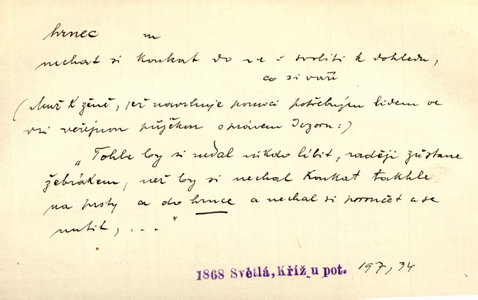 hrnec m
nechat si koukat do ve s svoliti k dohledu,
co si vaří
(Muž k ženě, jež navrhuje pomoci potřebným lidem ve
vsi veřejnou půjčkou s právem dozoru:)
"Tohle by si nedal nikdo líbit, raději zůstane
žebrákem, než by si nechal koukat takhle
na prsty a do hrnce a nechal si poroučet a se
nutit, ..."
1868 Světlá, Kříž u pot. 197, 94